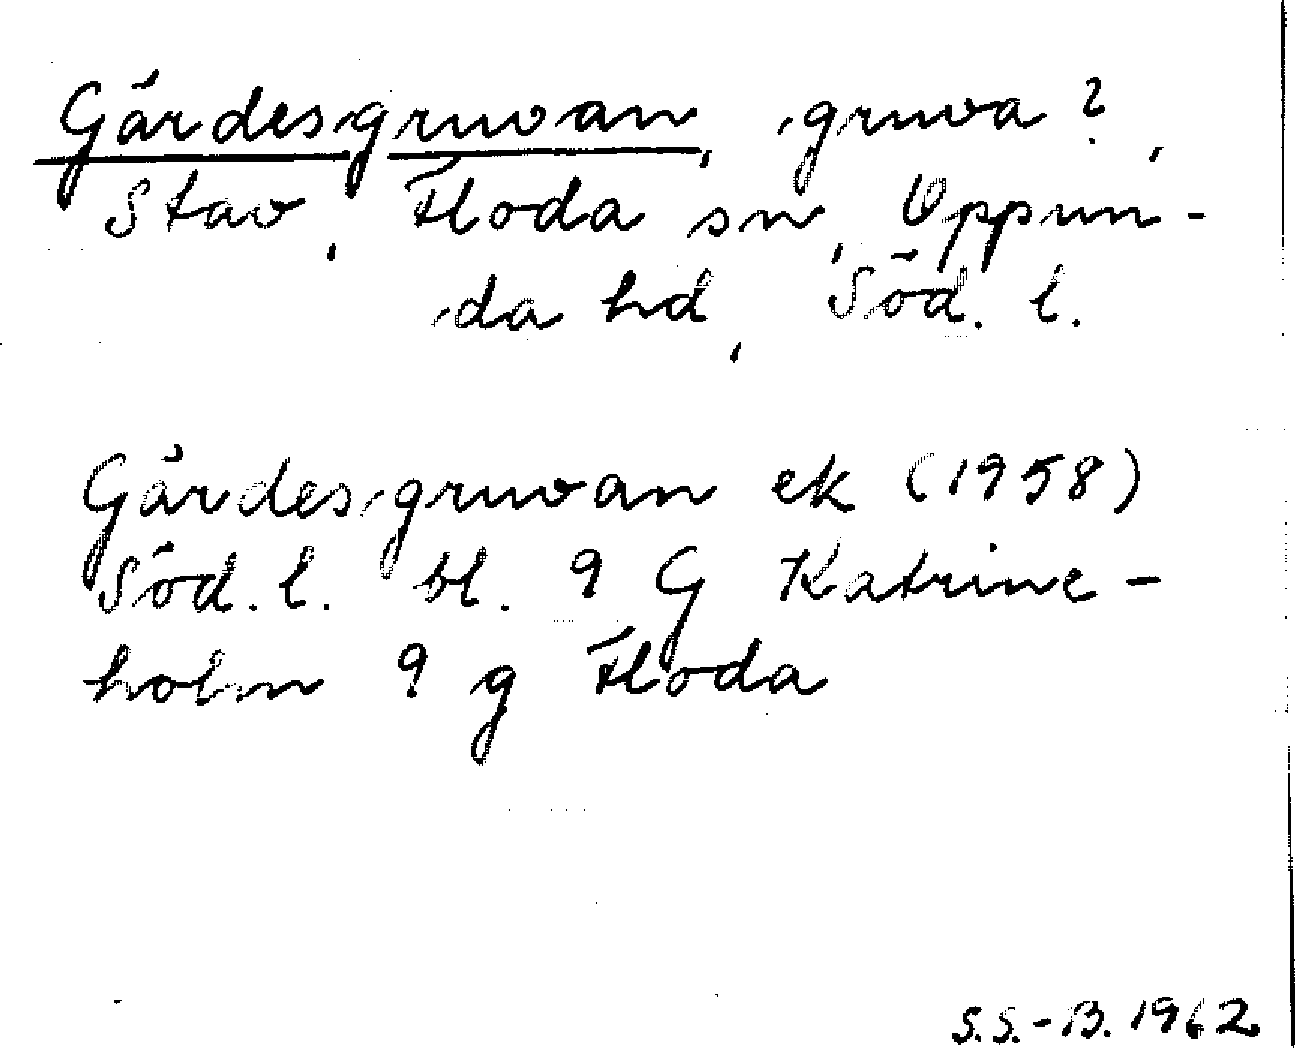 Gärdesgruvan, gruva?,
Stav, Floda sn, Oppun-
da hd, Söd. l.
Gärdesgruvan ek (1958)
Söd. l. bl. 9 G Katrine-
holm 9 g Floda
S.S.-B. 1962